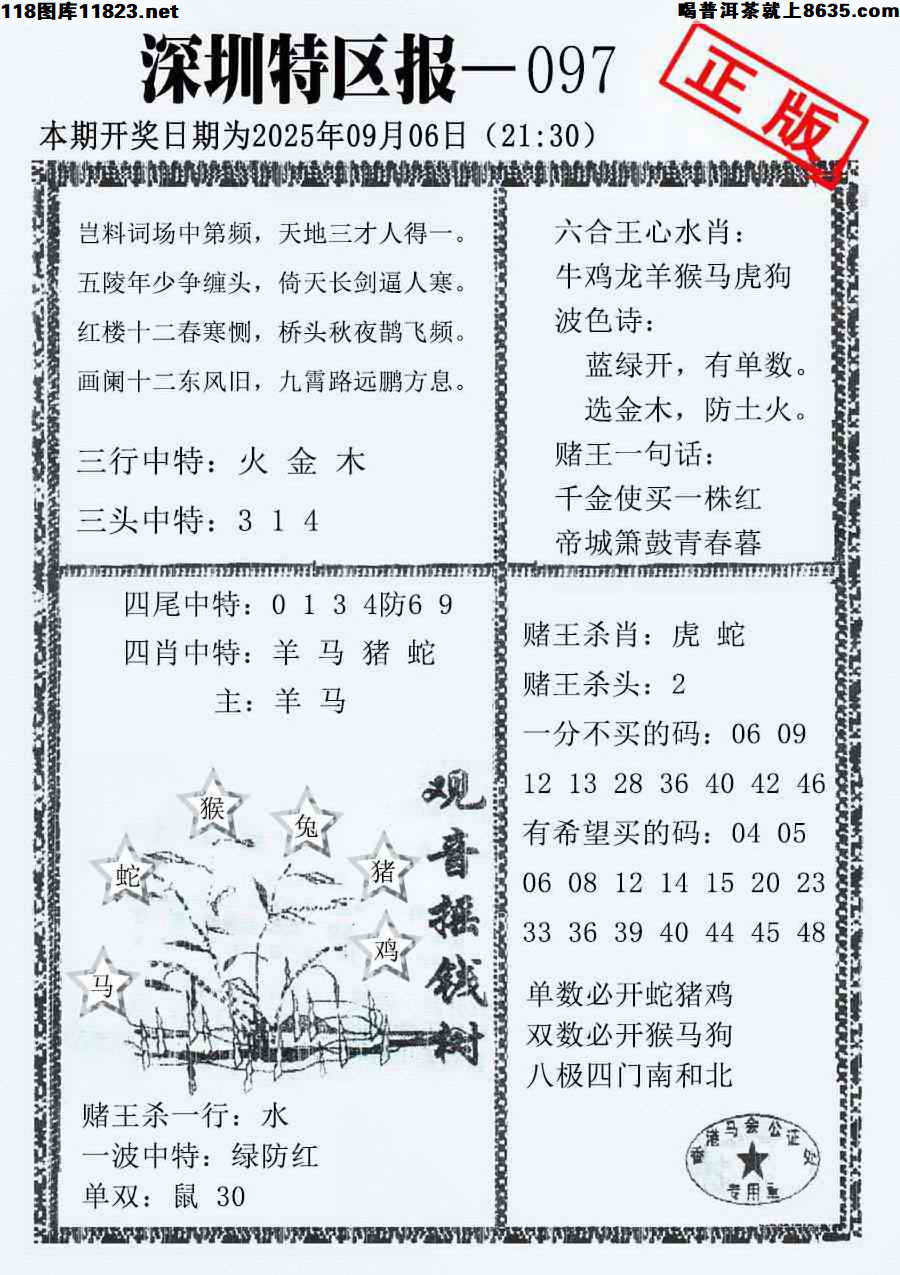 118图库11823.net
喝普洱茶就上8635.com
深圳特区报—097
正版
本期开奖日期为2025年09月06日（21:30）
岂料词场中第频，天地三才人得一。
五陵年少争缠头，倚天长剑逼人寒。
红楼十二春寒恻，桥头秋夜鹊飞频。
画阑十二东风旧，九霄路远鹏方息。
三行中特：火 金 木
三头中特：3 1 4
六合王心水肖：
牛鸡龙羊猴马虎狗
波色诗：
蓝绿开，有单数。
选金木，防土火。
赌王一句话：
千金使买一株红
帝城箫鼓青春暮
四尾中特：0 1 3 4防6 9
四肖中特：羊 马 猪 蛇
主：羊 马
猴
兔
蛇
猪
鸡
马
观音摇钱树
赌王杀一行：水
一波中特：绿防红
单双：鼠 30
赌王杀肖：虎 蛇
赌王杀头：2
一分不买的码：06 09
12 13 28 36 40 42 46
有希望买的码：04 05
06 08 12 14 15 20 23
33 36 39 40 44 45 48
单数必开蛇猪鸡
双数必开猴马狗
八极四门南和北
香港马会公证处
专用章